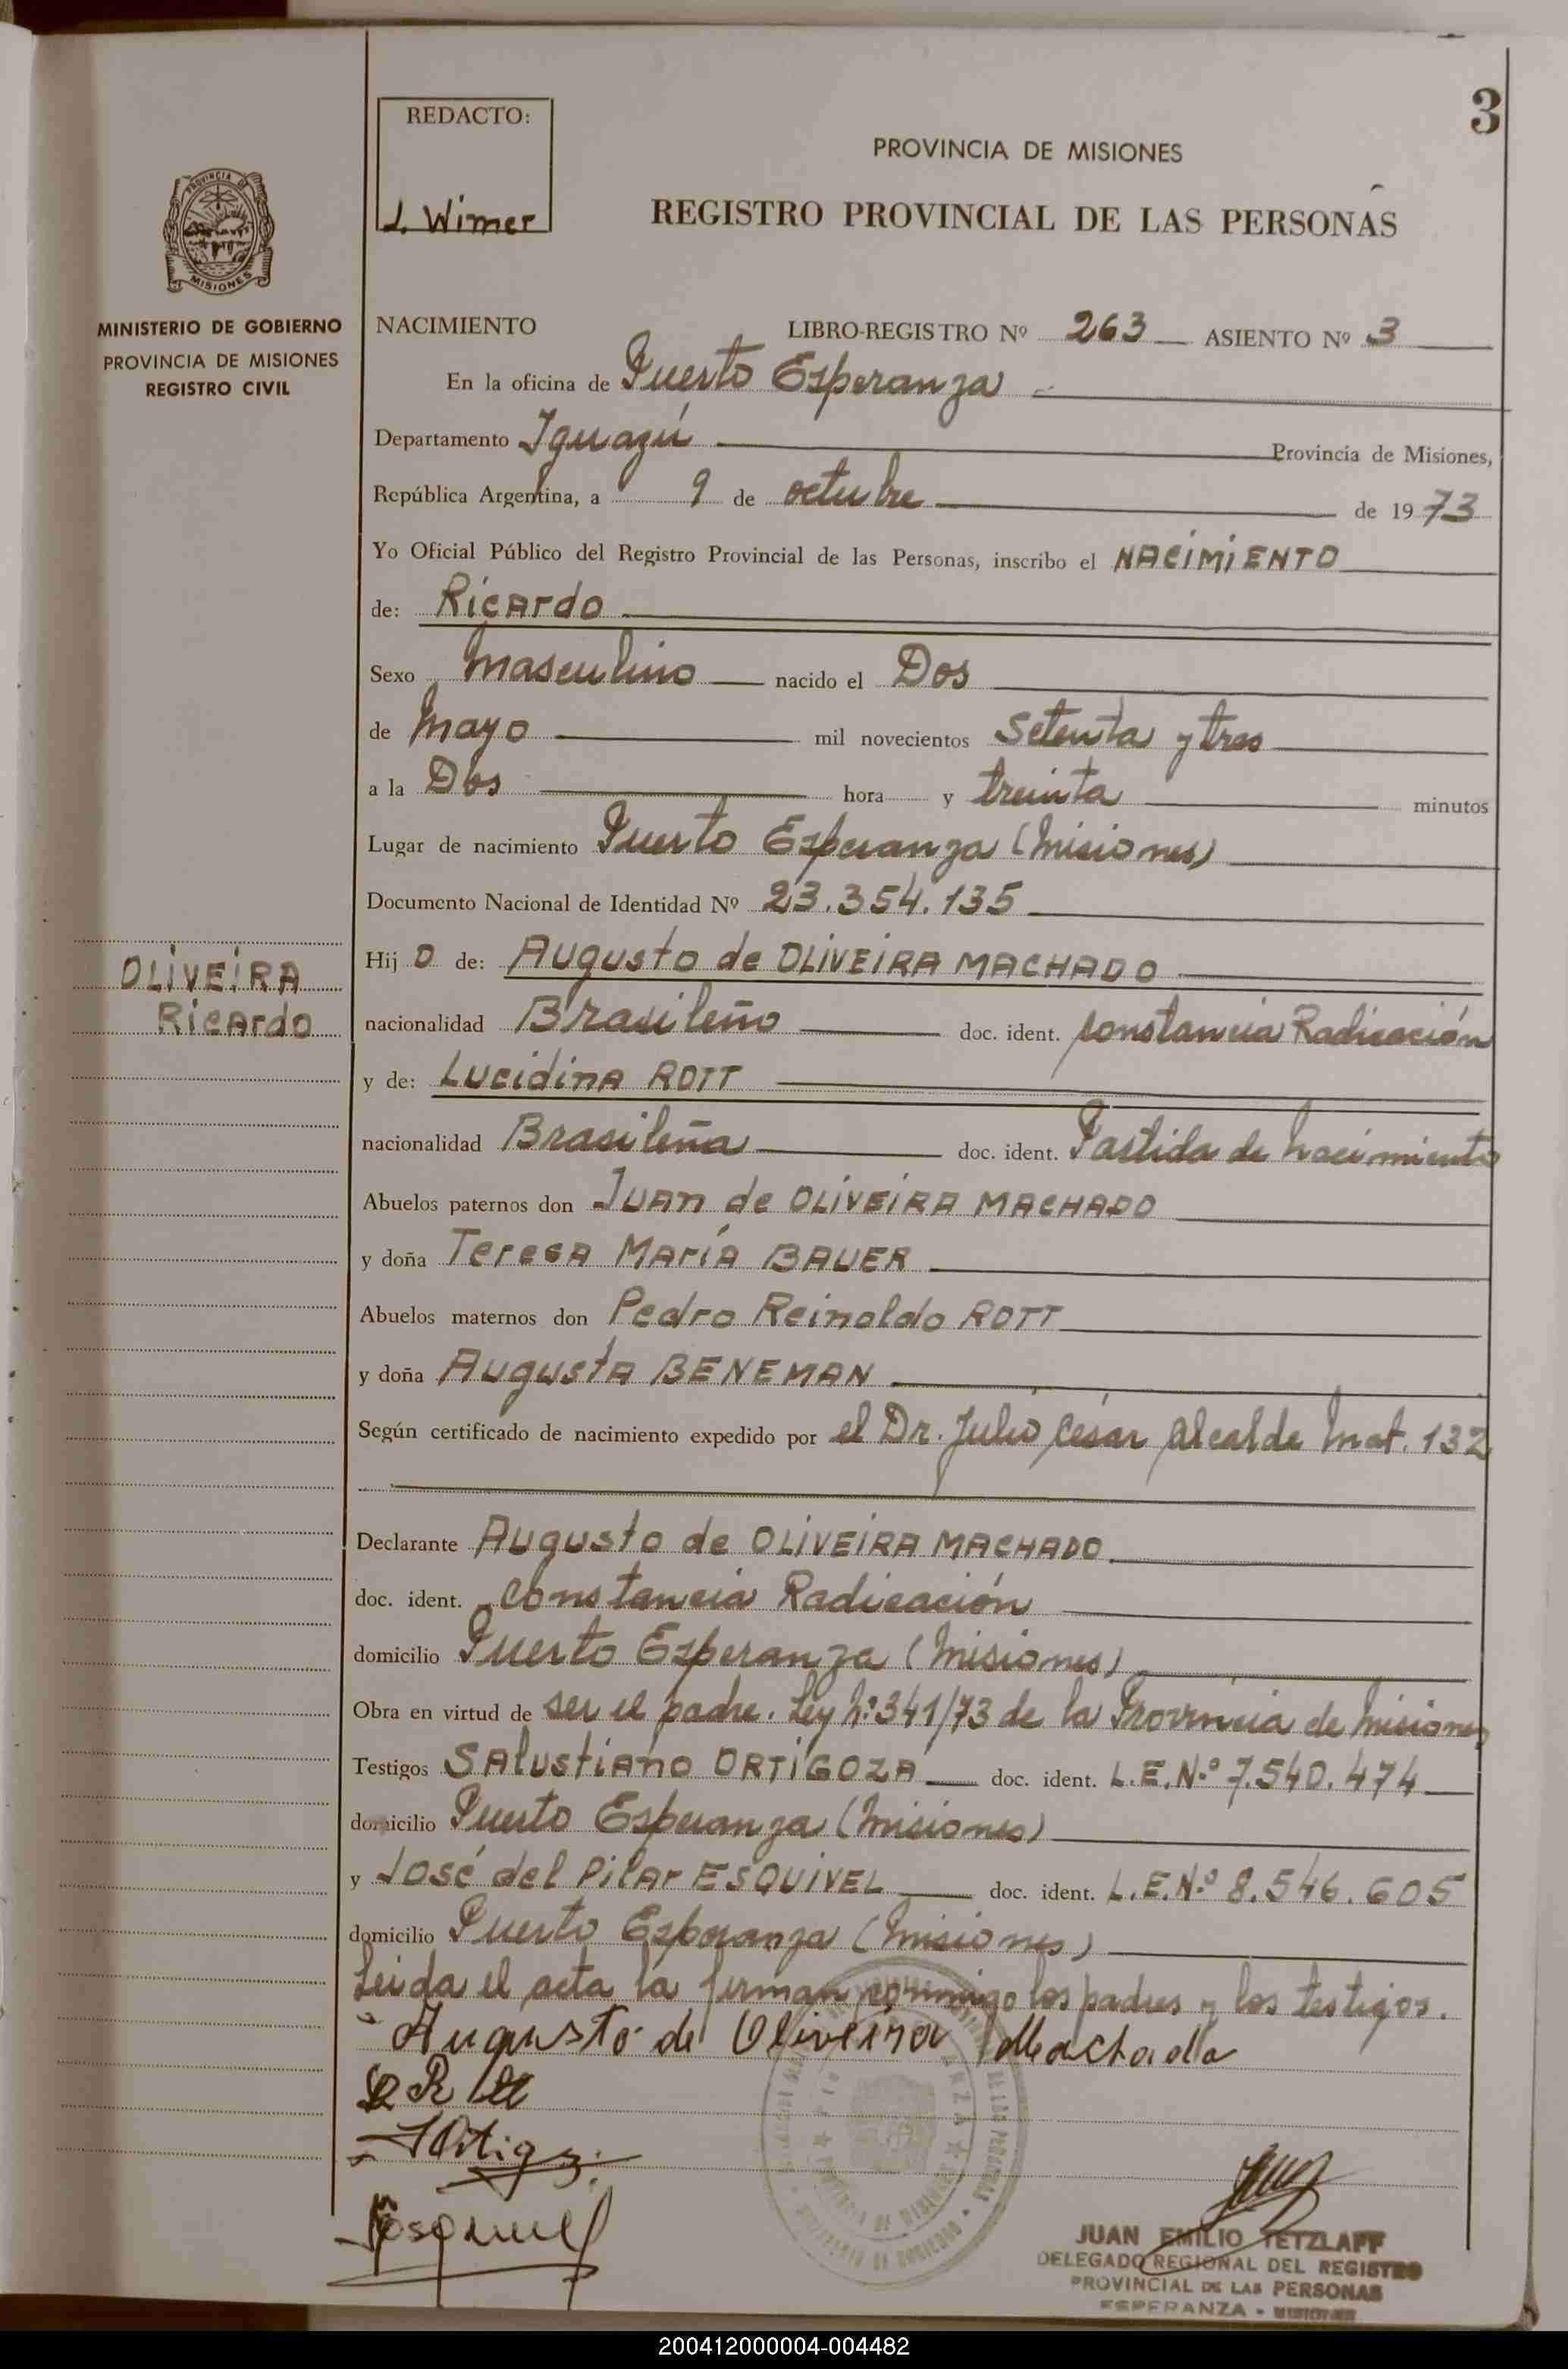 3
REDACTO:
J. Wimer
PROVINCIA DE MISIONES
REGISTRO PROVINCIAL DE LAS PERSONAS
PROVINCIA DE
MISIONES
MINISTERIO DE GOBIERNO
PROVINCIA DE MISIONES
REGISTRO CIVIL
NACIMIENTO LIBRO-REGISTRO Nº 263 ASIENTO Nº 3
En la oficina de Puerto Esperanza
Departamento Iguazú Provincia de Misiones,
República Argentina, a 9 de octubre de 1973
Yo Oficial Público del Registro Provincial de las Personas, inscribo el NACIMIENTO
de: Ricardo
Sexo masculino nacido el Dos
de Mayo mil novecientos setenta y tres
a la Dos hora y treinta minutos
Lugar de nacimiento Puerto Esperanza (Misiones)
Documento Nacional de Identidad Nº 23.354.135
OLIVEIRA
Ricardo
Hijo de: Augusto de OLIVEIRA MACHADO
nacionalidad Brasileño doc. ident. constancia Radicación
y de: Lucidina ROTT
nacionalidad Brasileña doc. ident. Partida de nacimiento
Abuelos paternos don Juan de OLIVEIRA MACHADO
y doña Teresa María BAUER
Abuelos maternos don Pedro Reinoldo ROTT
y doña Augusta BENEMAN
Según certificado de nacimiento expedido por el Dr. Julio César Alcalde Mat. 132
Declarante Augusto de OLIVEIRA MACHADO
doc. ident. constancia Radicación
domicilio Puerto Esperanza (Misiones)
Obra en virtud de ser el padre. Ley Nº 341/73 de la Provincia de Misiones
Testigos Salustiano ORTIGOZA doc. ident. L.E.Nº 7.540.474
domicilio Puerto Esperanza (Misiones)
y José del Pilar ESQUIVEL doc. ident. L.E.Nº 8.546.605
domicilio Puerto Esperanza (Misiones)
Leida el acta la firman conmigo los padres y los testigos.
Augusto de Oliveira Machado
JUAN EMILIO TETZLAFF
DELEGADO REGIONAL DEL REGISTRO
PROVINCIAL DE LAS PERSONAS
ESPERANZA - MISIONES
200412000004-004482